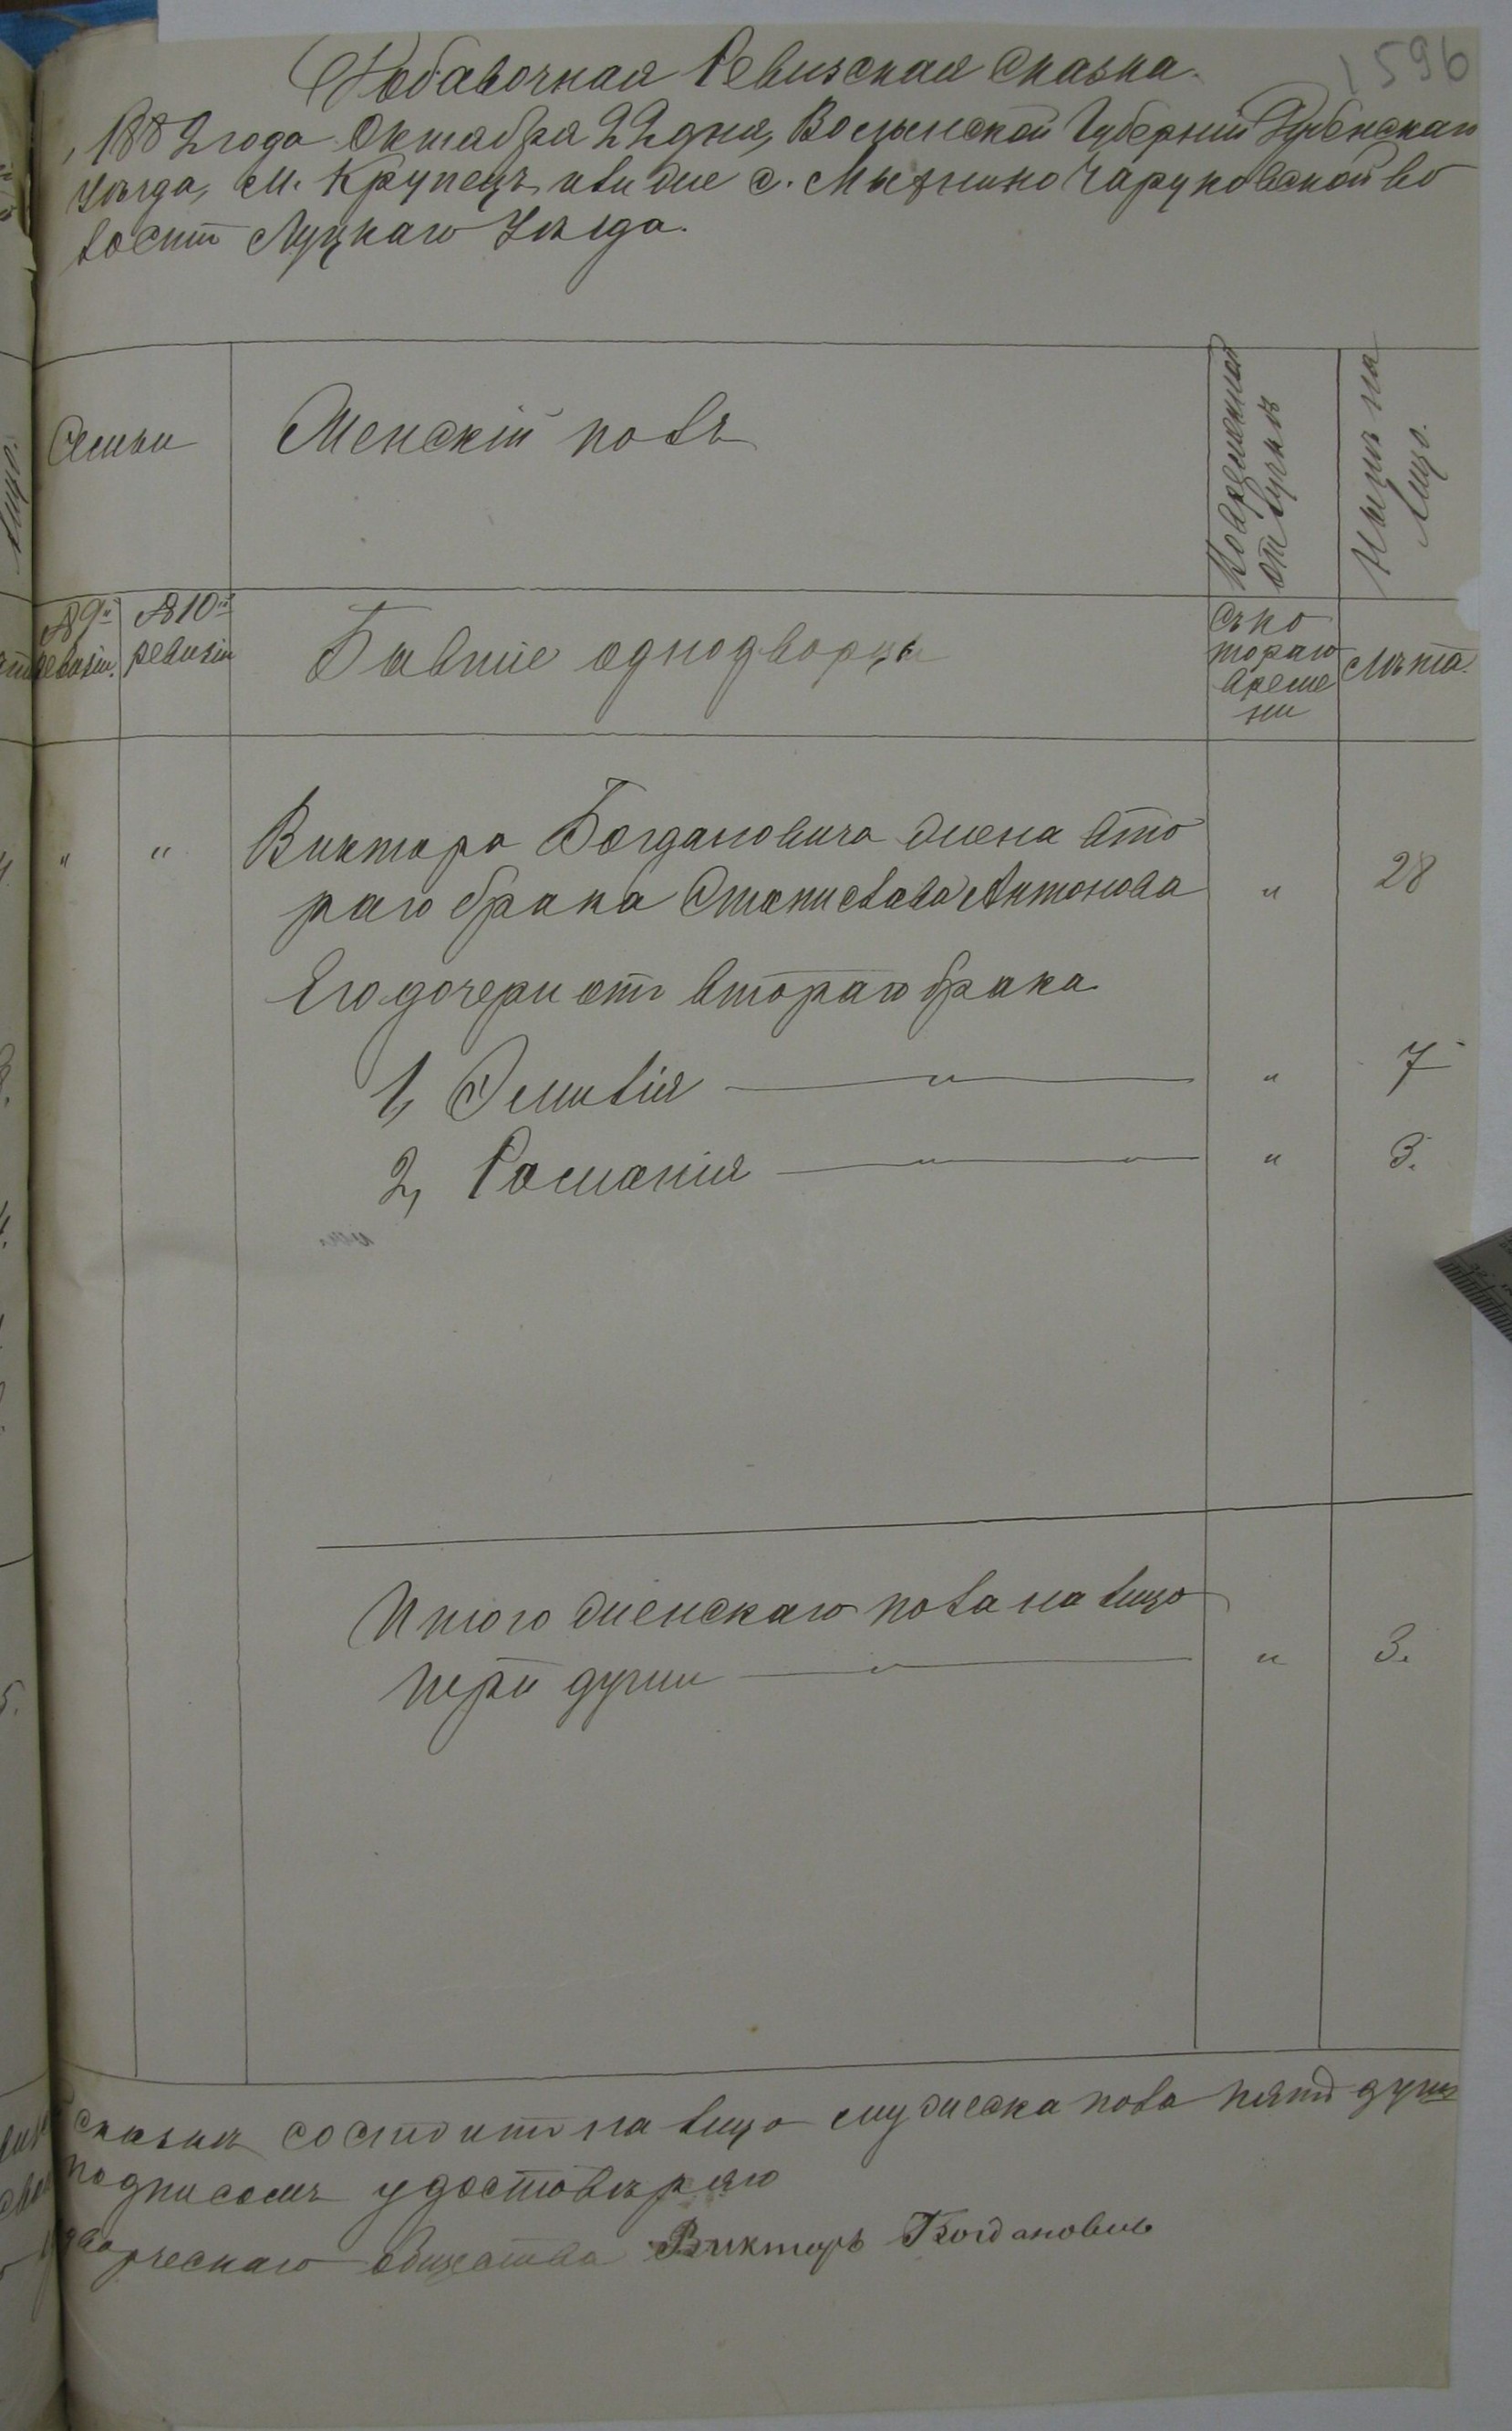 1596
Добавочная Ревизская Сказка.
1882 года Октября 22 дня, Волынской Губерніи Дубенскаго
Уѣзда, м. Крупецъ или же с. Чаруковской во
лости Луцкаго Уѣзда.
Семьи
Женскій полъ
Во временной
отлучкѣ
Нынѣ на
лицо.
№ 9й
ревизіи.
№ 10й
ревизіи
Бывшіе однодворцы
Съ ко
тораго
време
ни
Лѣта.
" " Виктора Богдановича жена вто
раго брака Станислава Антонова " 28
Его дочери отъ втораго брака
1, Эмилія — " — " 7
2, Романія — " — " 3.
Итого женскаго пола на лицо
три души — " — " 3.
сказкѣ состоитъ на лицо мужеска пола пять душъ
подписомъ удостовѣряю
общества Викторъ Богдановичъ